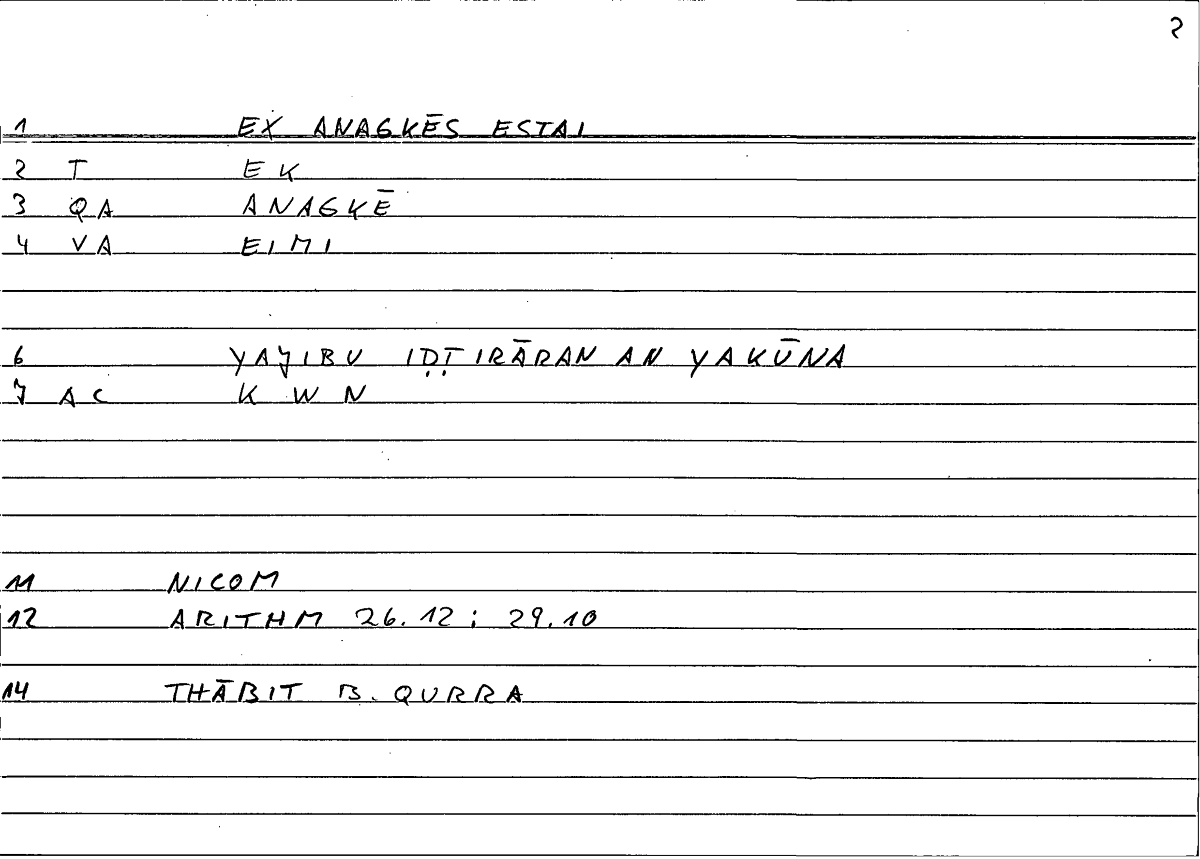 2
1 EX ANAGKĒS ESTAI
2 T EK
3 QA ANAGKĒ
4 VA EIMI
6 YAJIBU IḌṬIRĀRAN AN YAKŪNA
7 AC K W N
11 NICOM
12 ARITHM 26.12 ; 29.10
14 THĀBIT B. QURRA